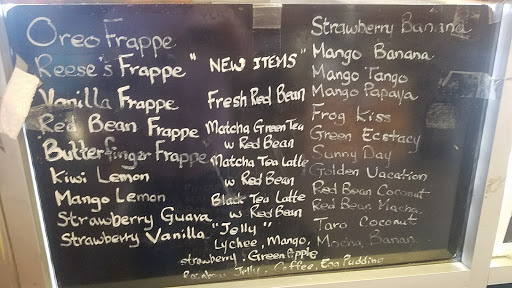 Oreo Frappe
Reese's Frappe
Vanilla Frappe
Red Bean Frappe
Butterfinger Frappe
Kiwi Lemon
Mango Lemon
Strawberry Guava
Strawberry Vanilla
"NEW ITEMS"
Fresh Red Bean
Matcha Green Tea
w Red Bean
Matcha Tea Latte
w Red Bean
Black Tea Latte
w Red Bean
"Jelly"
Lychee, Mango,
Strawberry, Green Apple
Rainbow Jelly, Coffee, Egg Pudding
Strawberry Banana
Mango Banana
Mango Tango
Mango Papaya
Frog Kiss
Green Ecstacy
Sunny Day
Golden Vacation
Red Bean Coconut
Red Bean
Taro Coconut
Mocha Banan